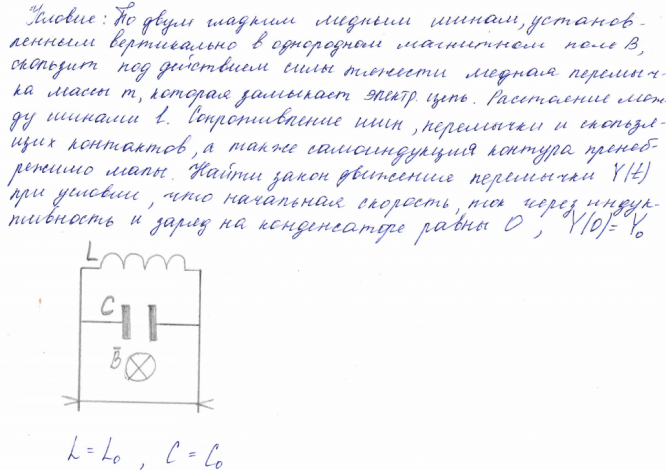 Условие: По двум гладким медным шинам, установ-
ленным вертикально в однородном магнитном поле B,
скользит под действием силы тяжести медная перемыч-
ка массы m, которая замыкает электр. цепь. Расстояние меж-
ду шинами l. Сопротивление шин, перемычки и скользя-
щих контактов, а также самоиндукция контура пренеб-
режимо малы. Найти закон движения перемычки Y(t)
при условии, что начальная скорость, ток через индук-
тивность и заряд на конденсаторе равны 0, Y(0)=Y₀
L
C
B̅
L = L₀, C = C₀